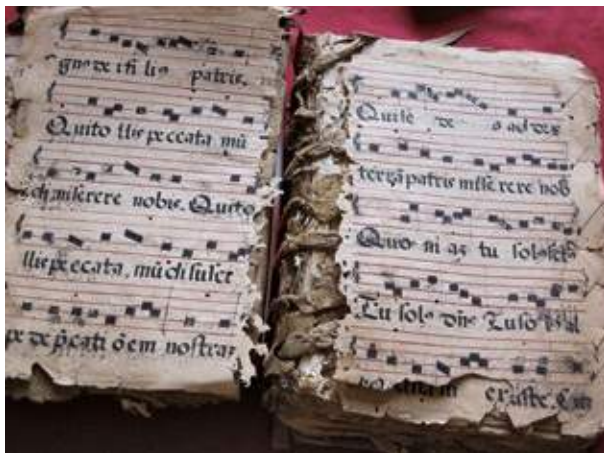 gnꝰ de iſi liꝰ patris.
Qui to llis peccata mū
di, miserere nobis. Qui to
llis peccata, mūdi suscɩ
pe depͥcati ōem nostraz
Qui sè de s ad dex
terā patris mise rere nob
Quo ni aʒ tu solꝰ sctꝰ
Tu solꝰ dñs Tu so lꝰ al
criste. Cuʒ